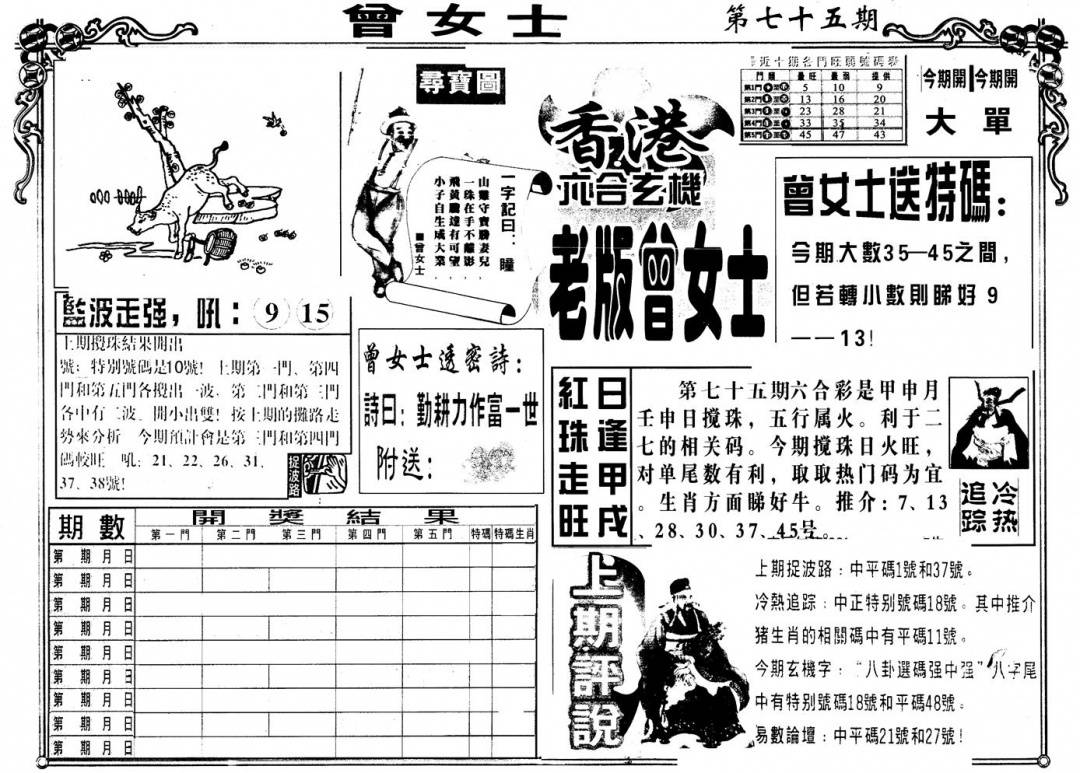 曾女士
第七十五期
尋寶圖
一字記曰：瞳
山雞守寶勝妻兒
一珠在手不離影
飛黃騰達有可望
小子自生成大業
曾女士
香港
六合玄機
老版曾女士
近十期各門旺弱號碼彩
門類 最旺 最弱 提供
第1門 5 10 9
第2門 13 16 20
第3門 23 28 21
第4門 33 35 34
第5門 45 47 43
今期開 今期開
大 單
曾女士送特碼：
今期大數35—45之間，
但若轉小數則睇好 9
——13!
藍波走强，吼：9 15
上期攪珠結果開出
號：特別號碼是10號! 上期第一門、第四
門和第五門各攪出一波，第二門和第三門
各中有二波、開小出雙! 按上期的攤路走
勢來分析，今期預計會是第三門和第四門
碼較旺，吼：21、22、26、31、
37、38號!
捉波路
曾女士透密詩：
詩曰：勤耕力作富一世
附送：
紅珠走旺
日逢甲戌
第七十五期六合彩是甲申月
壬申日搅珠，五行属火。利于二
七的相关码。今期搅珠日火旺，
对单尾数有利，取取热门码为宜
。生肖方面睇好牛。推介：7、13
、28、30、37、45号。
冷热
追踪
期數 開獎結果
第一門 第二門 第三門 第四門 第五門 特碼 特碼生肖
第 期 月 日
第 期 月 日
第 期 月 日
第 期 月 日
第 期 月 日
第 期 月 日
第 期 月 日
第 期 月 日
第 期 月 日
上期評說
上期捉波路：中平碼1號和37號。
冷熱追踪：中正特別號碼18號。其中推介
猪生肖的相關碼中有平碼11號。
今期玄機字：“八卦選碼强中强”八字尾
中有特別號碼18號和平碼48號。
易數論壇：中平碼21號和27號!